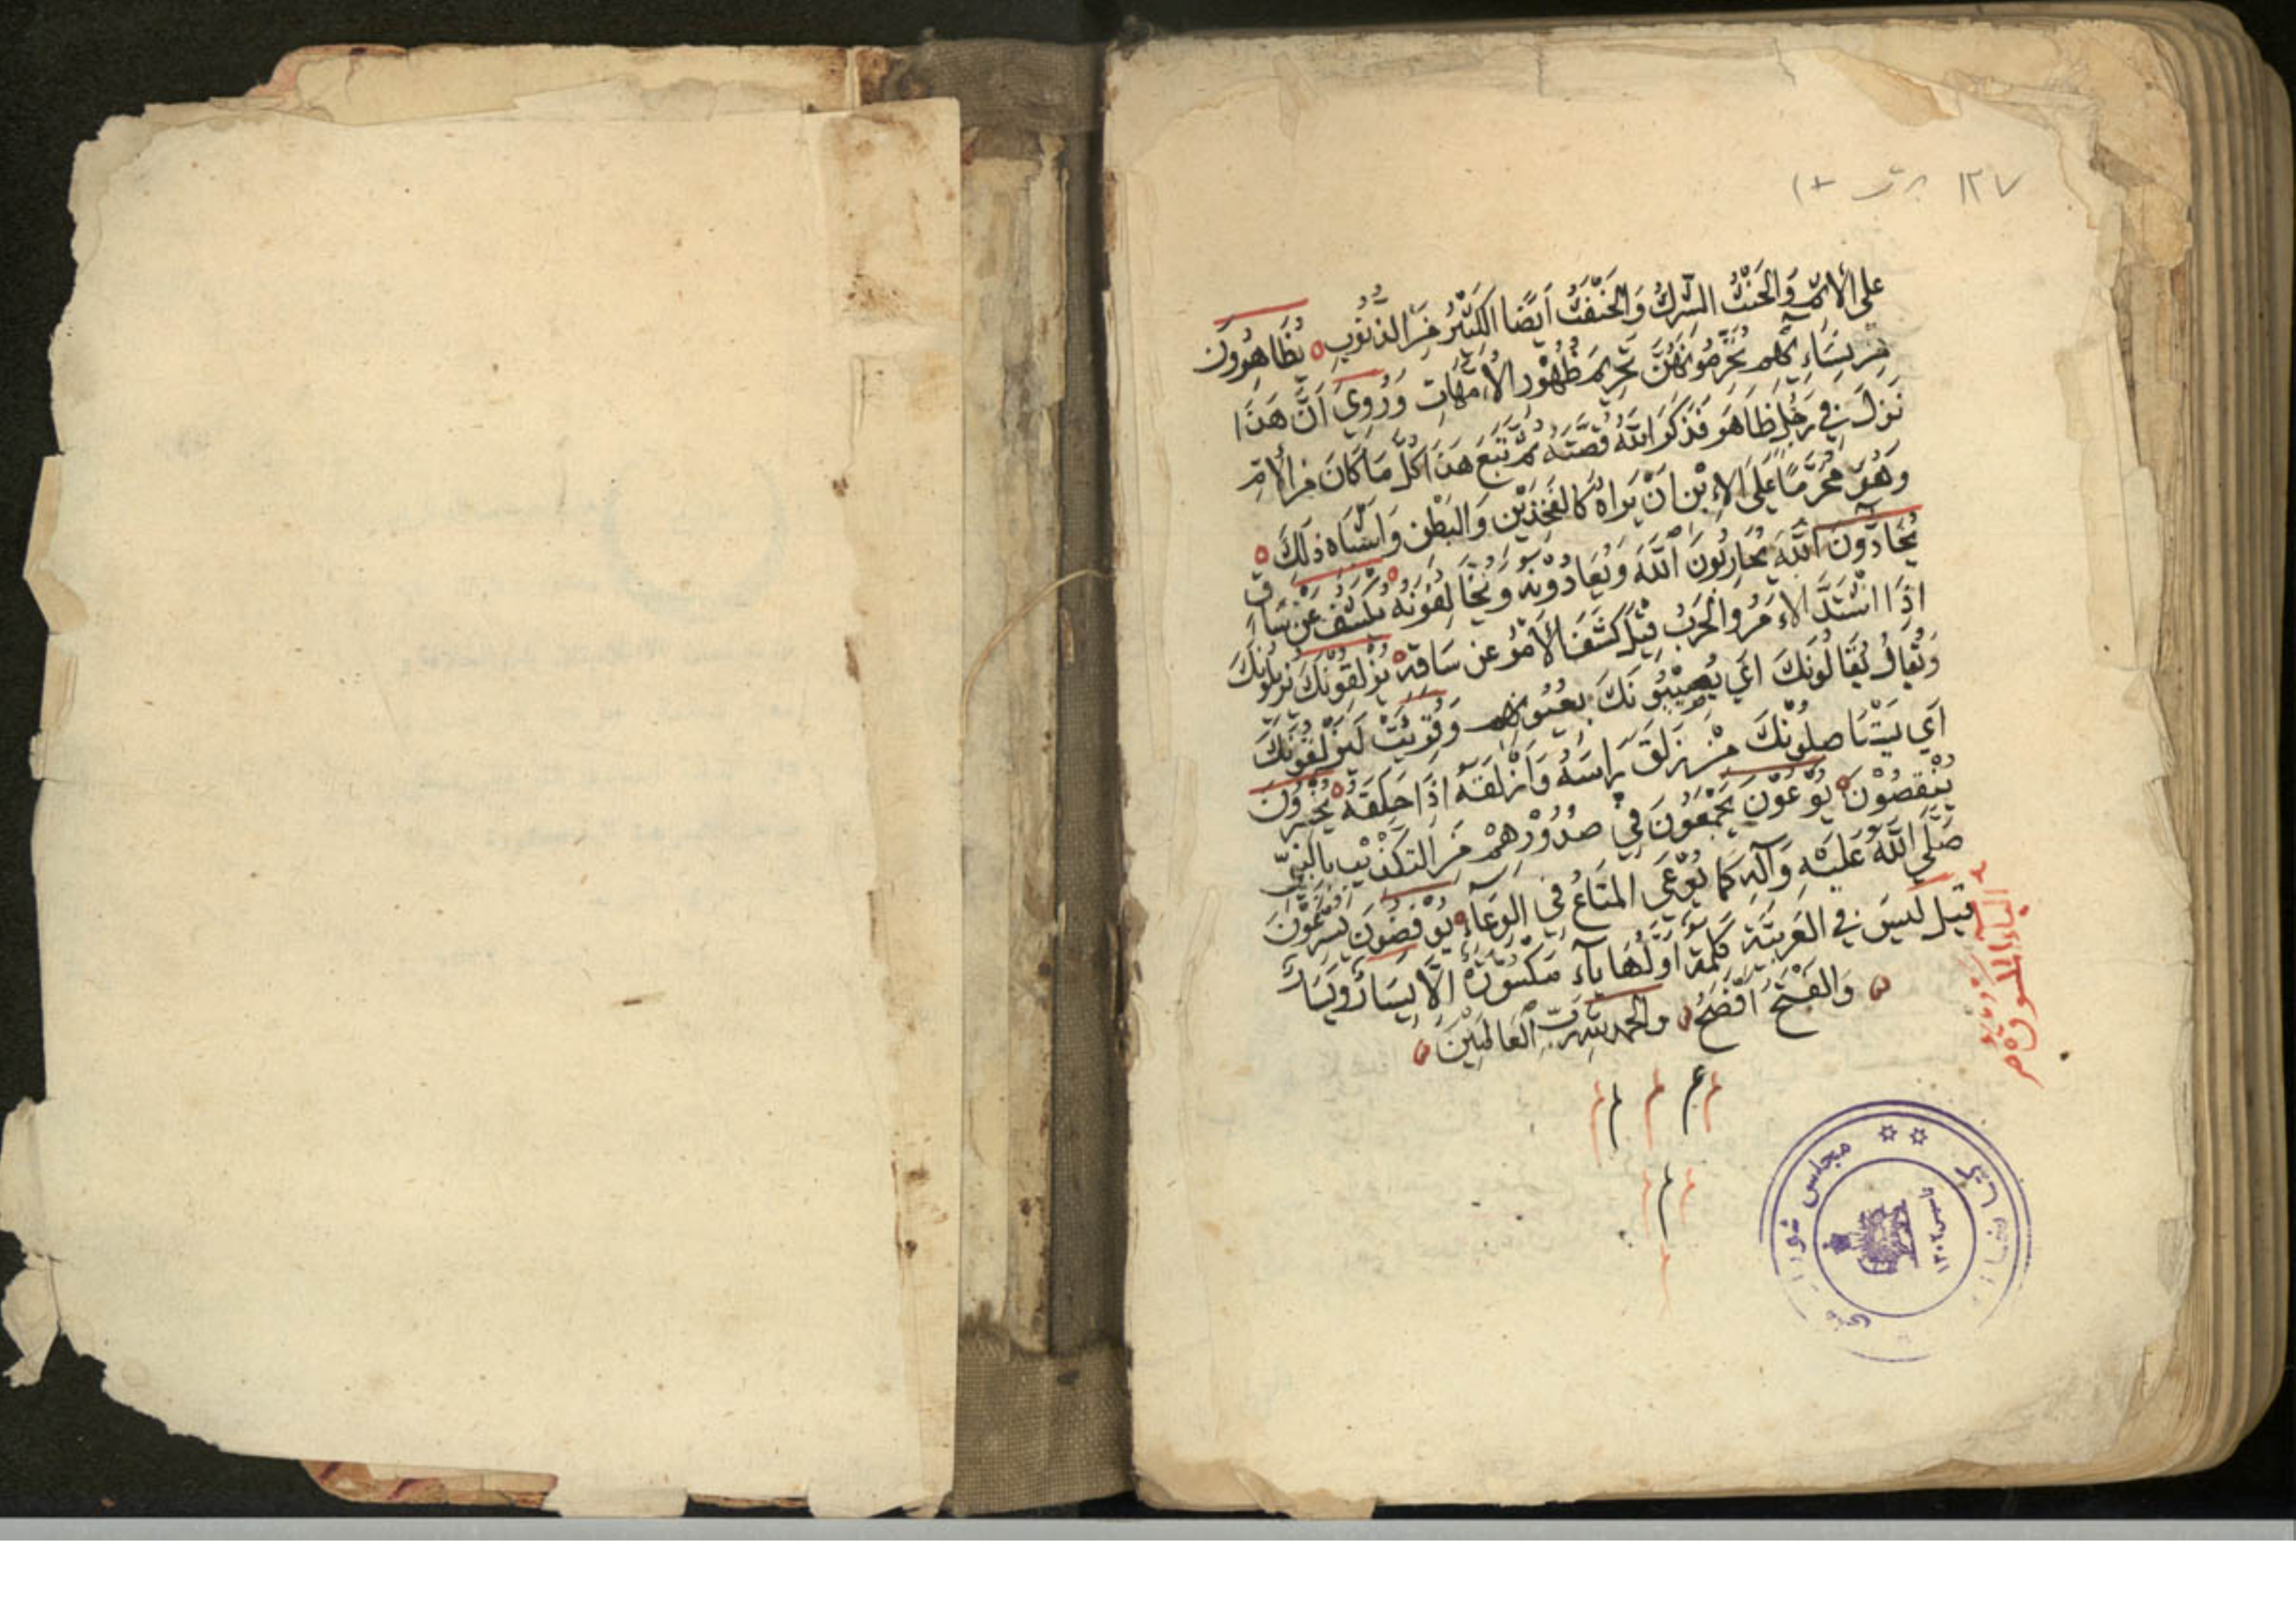 ١٢٧
على الإثم والحنث الشرك والحنث أيضًا الكثير من الذنوب يُظَاهِرُونَ
مِن نِسَائِهِم يُحَرِّمُونَهُنَّ تَحْرِيمَ ظُهُورِ الأُمَّهَاتِ وَرُوِيَ أَنَّ هَذَا
نَزَلَ فِي رَجُلٍ ظَاهَرَ فَذَكَرَ اللهُ قِصَّتَهُ ثُمَّ تَبِعَ هَذَا كُلَّ مَا كَانَ مِنَ الأُمِّ
وَهُوَ مُحَرَّمًا عَلَى الإِبْنِ أَنْ يَرَاهُ كَالفَخِذَيْنِ وَالبَطْنِ وَأَشْبَاهِ ذَلِكَ
يُحَادُّونَ اللهَ يُحَارِبُونَ اللهَ وَيُعَادُونَهُ وَيُخَالِفُونَهُ يُكْشَفُ عَنْ سَاقٍ
إِذَا اشْتَدَّ الأَمْرُ وَالحَرْبُ قِيلَ كَشَفَ الأَمْرُ عَن سَاقِهِ يُزْلِقُونَكَ يُزِيلُونَكَ
وَيُقَالُ يَعْتَانُونَكَ أَي يُصِيبُونَكَ بِعُيُونِهِم وَقُرِئَتْ لَيَزْلِقُونَكَ
أَي يَسْتَأصِلُونَكَ مِنْ زَلَقَ رَأسَهُ وَأَزْلَقَهُ إِذَا حَلَقَهُ يُخْسِرُونَ
يَنْقُصُونَ يُوعُونَ يَجْمَعُونَ فِي صُدُورِهِمْ مِنَ التَكْذِيْبِ بِالنَّبِيِّ
صَلَّى اللهُ عَلَيْهِ وَآلِهِ كَمَا يُوعَى المَتَاعُ فِي الوِعَاءِ يُوفِضُونَ يُسْرِعُونَ
قِيلَ لَيْسَ فِي العَرَبِيَّةِ كَلِمَةٌ أَوَّلُهَا يَآءٌ مَكْسُورَةٌ إِلَّا يِسَارٌ وَيِسَارٌ
وَالفَتْحُ أَفْصَحُ وَالحَمْدُ للهِ رَبِّ العَالَمِينَ
الياء المكسورة
مجلس شورای ملی
تاسيس ١٣٠٢